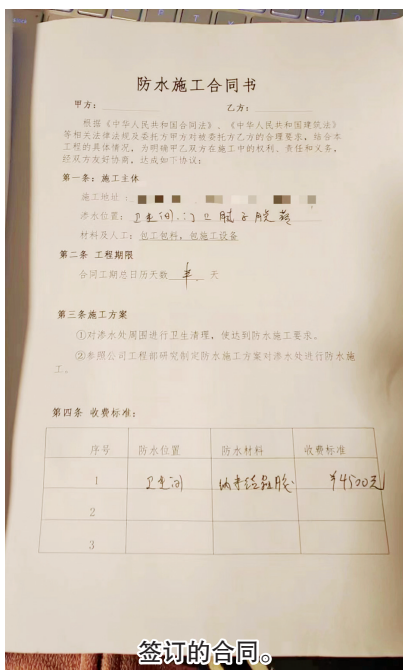 防水施工合同书
甲方： 乙方：
根据《中华人民共和国合同法》、《中华人民共和国建筑法》
等相关法律法规及委托方甲方对被委托方乙方的合理要求，结合本
工程的具体情况，为明确甲乙双方在施工中的权利、责任和义务，
经双方友好协商，达成如下协议：
第一条：施工主体
施工地址：
渗水位置：卫生间：门卫腻子脱落
材料及人工：包工包料，包施工设备
第二条 工程期限
合同工期总日历天数 半 天
第三条施工方案
①对渗水处周围进行卫生清理，使达到防水施工要求。
②参照公司工程部研究制定防水施工方案对渗水处进行防水施
工。
第四条 收费标准：
序号 防水位置 防水材料 收费标准
1 卫生间 纳米硅胶 ¥4500元
2
3
签订的合同。